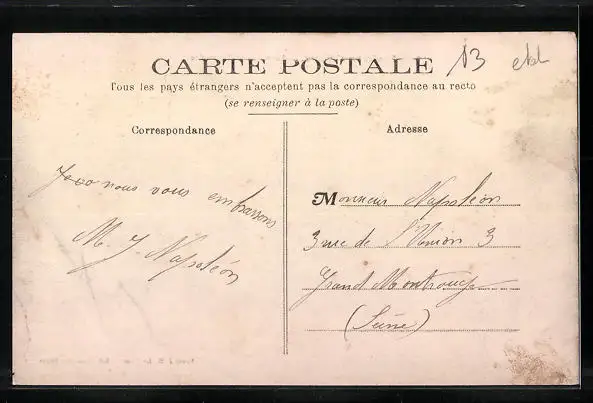 CARTE POSTALE
13
Tous les pays étrangers n'acceptent pas la correspondance au recto
(se renseigner à la poste)
Correspondance
Adresse
nous vous embrassons
M. J. Napoléon
Monsieur Napoléon
3 rue de l'Union 3
Grand Montrouge
(Seine)